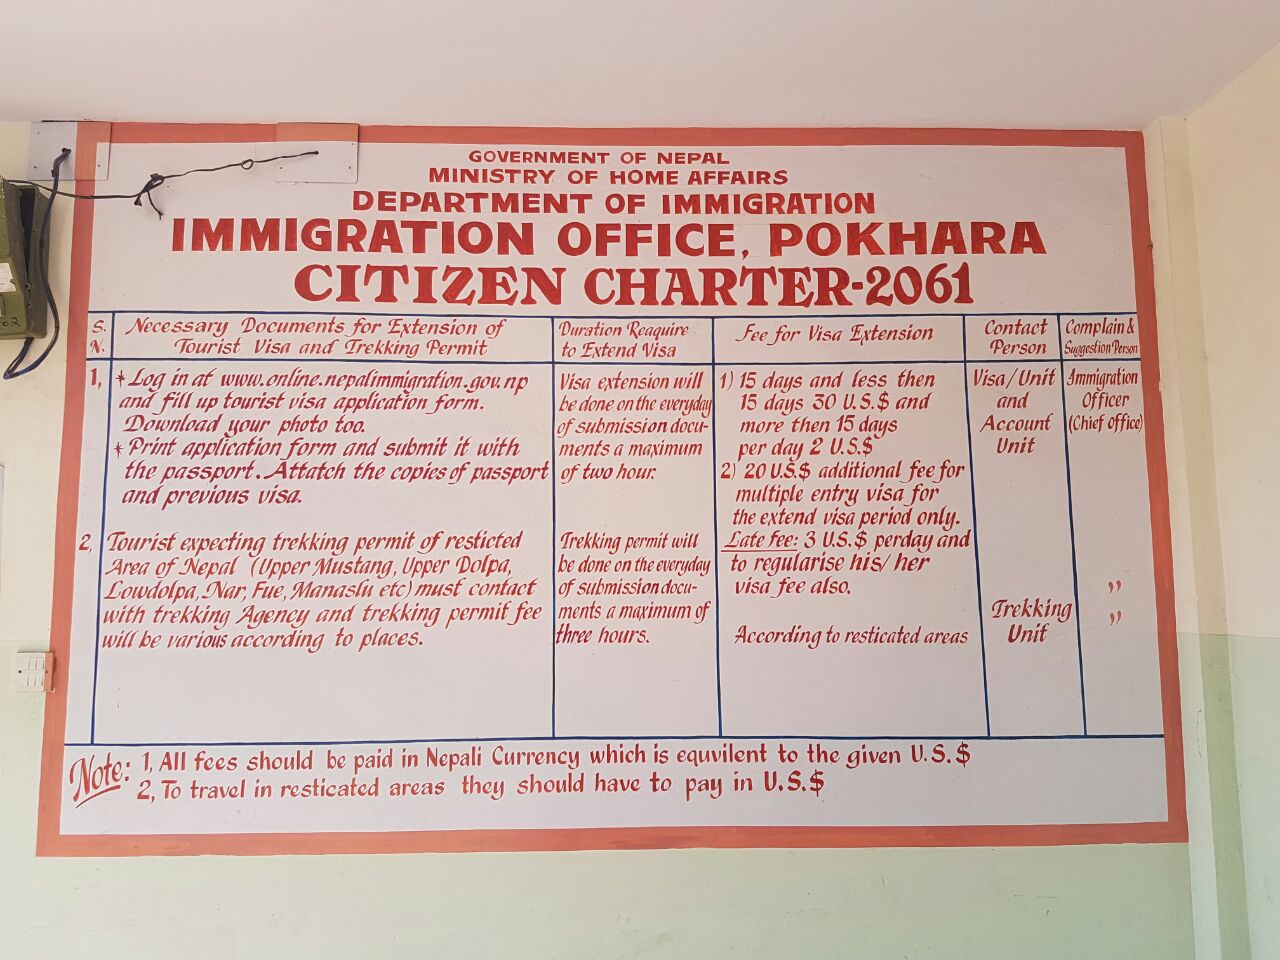 GOVERNMENT OF NEPAL
MINISTRY OF HOME AFFAIRS
DEPARTMENT OF IMMIGRATION
IMMIGRATION OFFICE, POKHARA
CITIZEN CHARTER-2061
S.
N.
Necessary Documents for Extension of
Tourist Visa and Trekking Permit
Duration Reaquire
to Extend Visa
Fee for Visa Extension
Contact
Person
Complain &
Suggestion Person
1,
* Log in at www.online.nepalimmigration.gov.np
and fill up tourist visa application form.
Download your photo too.
* Print application form and submit it with
the passport. Attatch the copies of passport
and previous visa.
Visa extension will
be done on the everyday
of submission docu-
ments a maximum
of two hour.
1) 15 days and less then
15 days 30 U.S.$ and
more then 15 days
per day 2 U.S.$
2) 20 U.S.$ additional fee for
multiple entry visa for
the extend visa period only.
Late fee: 3 U.S.$ perday and
to regularise his/her
visa fee also.
Visa/Unit
and
Account
Unit
Immigration
Officer
(Chief office)
2,
Tourist expecting trekking permit of resticted
Area of Nepal (Upper Mustang, Upper Dolpa,
Lowdolpa, Nar, Fue, Manaslu etc) must contact
with trekking Agency and trekking permit fee
will be various according to places.
Trekking permit will
be done on the everyday
of submission docu-
ments a maximum of
three hours.
According to resticated areas
Trekking
Unit
"
"
Note: 1, All fees should be paid in Nepali Currency which is equvilent to the given U.S.$
2, To travel in resticated areas they should have to pay in U.S.$